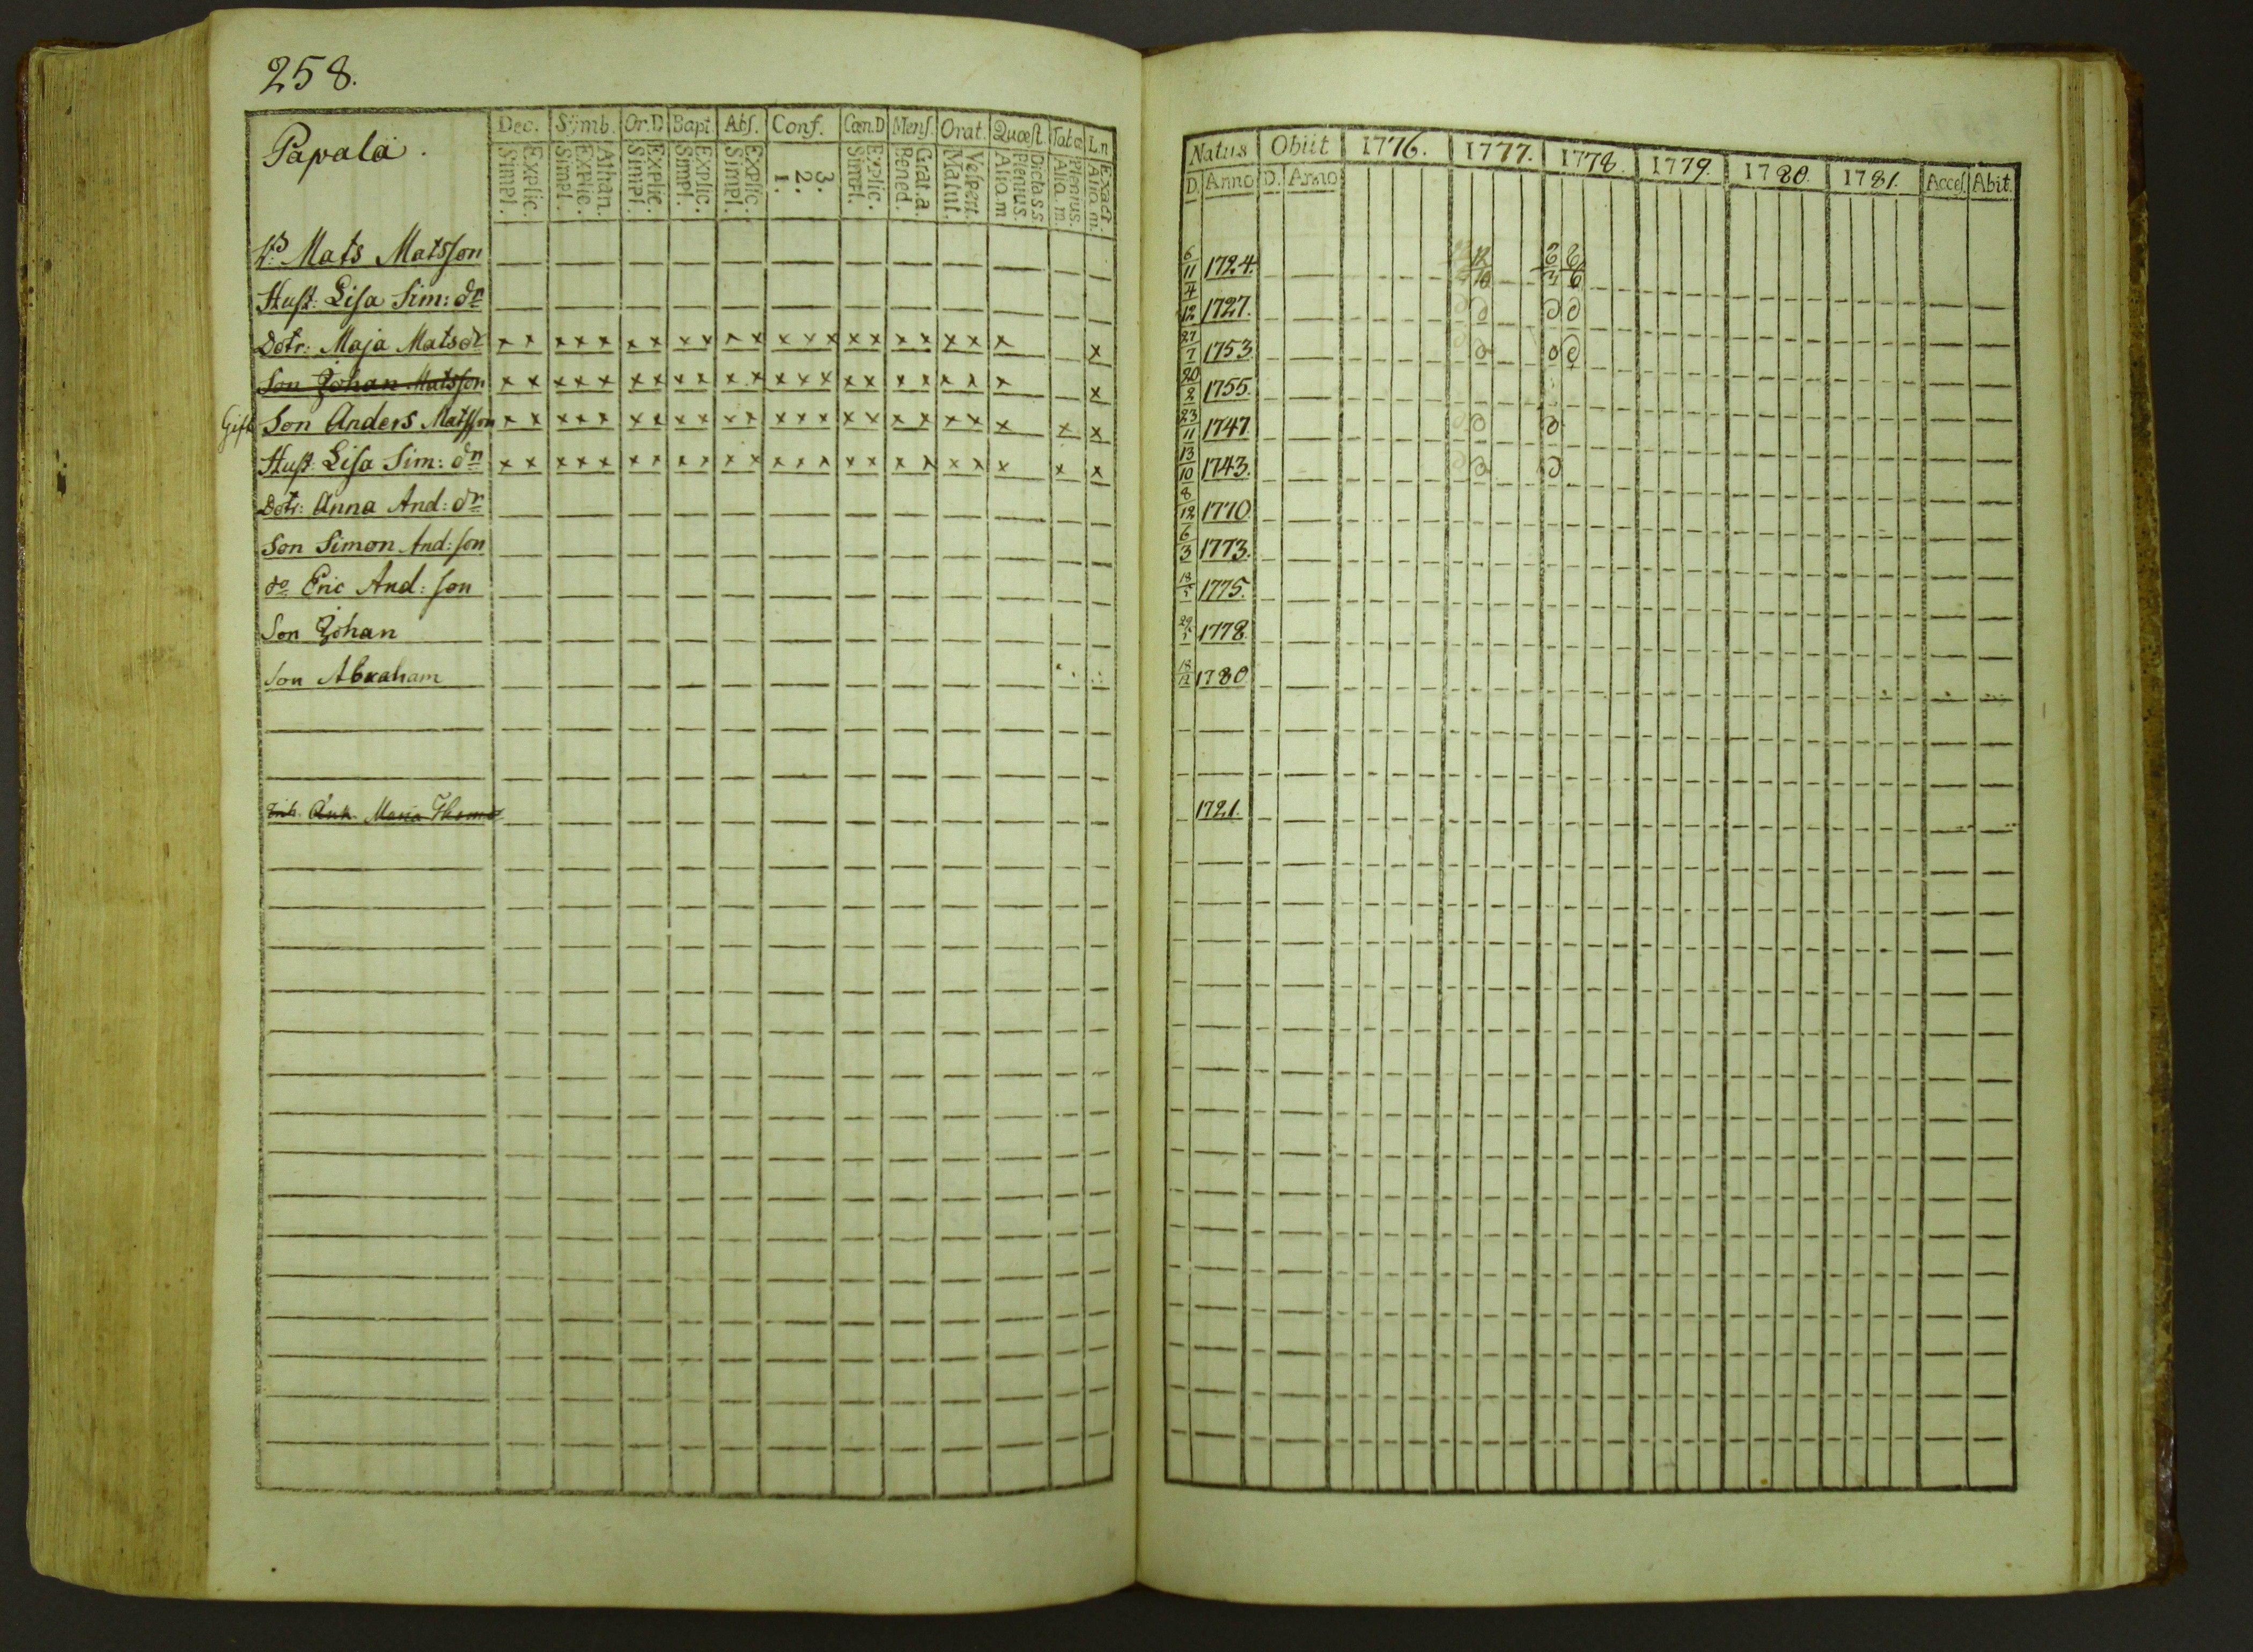 258.
Papala.
Dec. Symb. Or.D Bapt. Abs. Conf. Cœn.D Mens. Orat. Quæst. Tabæ L.n
Simpl. Explic. Simpl. Explic. Athan. Simpl. Explic. Simpl. Explic. Simpl. Explic. 1. 2. 3. Simpl. Explic. Bened. Grat.a. Matut. Vespert. Alio.m Plenius. Dicta s.s Alio.m. Plenius. Alio.m. Exact.
Mats Matsson
Hust: Lisa Sim: dr x
Dotr: Maja Matsdr x x x x x x x x x x x x x x x x x x x x x x x
Son Johan Matsson x x x x x x x x x x x x x x x x x x x x x x x
Gift Son Anders Matsson x x x x x x x x x x x x x x x x x x x x x x x x
Hust: Lisa Sim: dr x x x x x x x x x x x x x x x x x x x x x x x x
Dotr: Anna And: dr
Son Simon And: son
do Eric And: son
Son Johan
Son Abraham
Maria Thoms
Natus Obiit 1776. 1777. 1778. 1779. 1780. 1781. Acces. Abit.
D. Anno D. Anno
6/11 1724. 12/10 6/3 6/6
4/12 1727.
27/7 1753.
20/2 1755.
23/11 1747.
13/10 1743.
8/12 1770.
6/3 1773.
1775.
1778.
18/12 1780
1721.